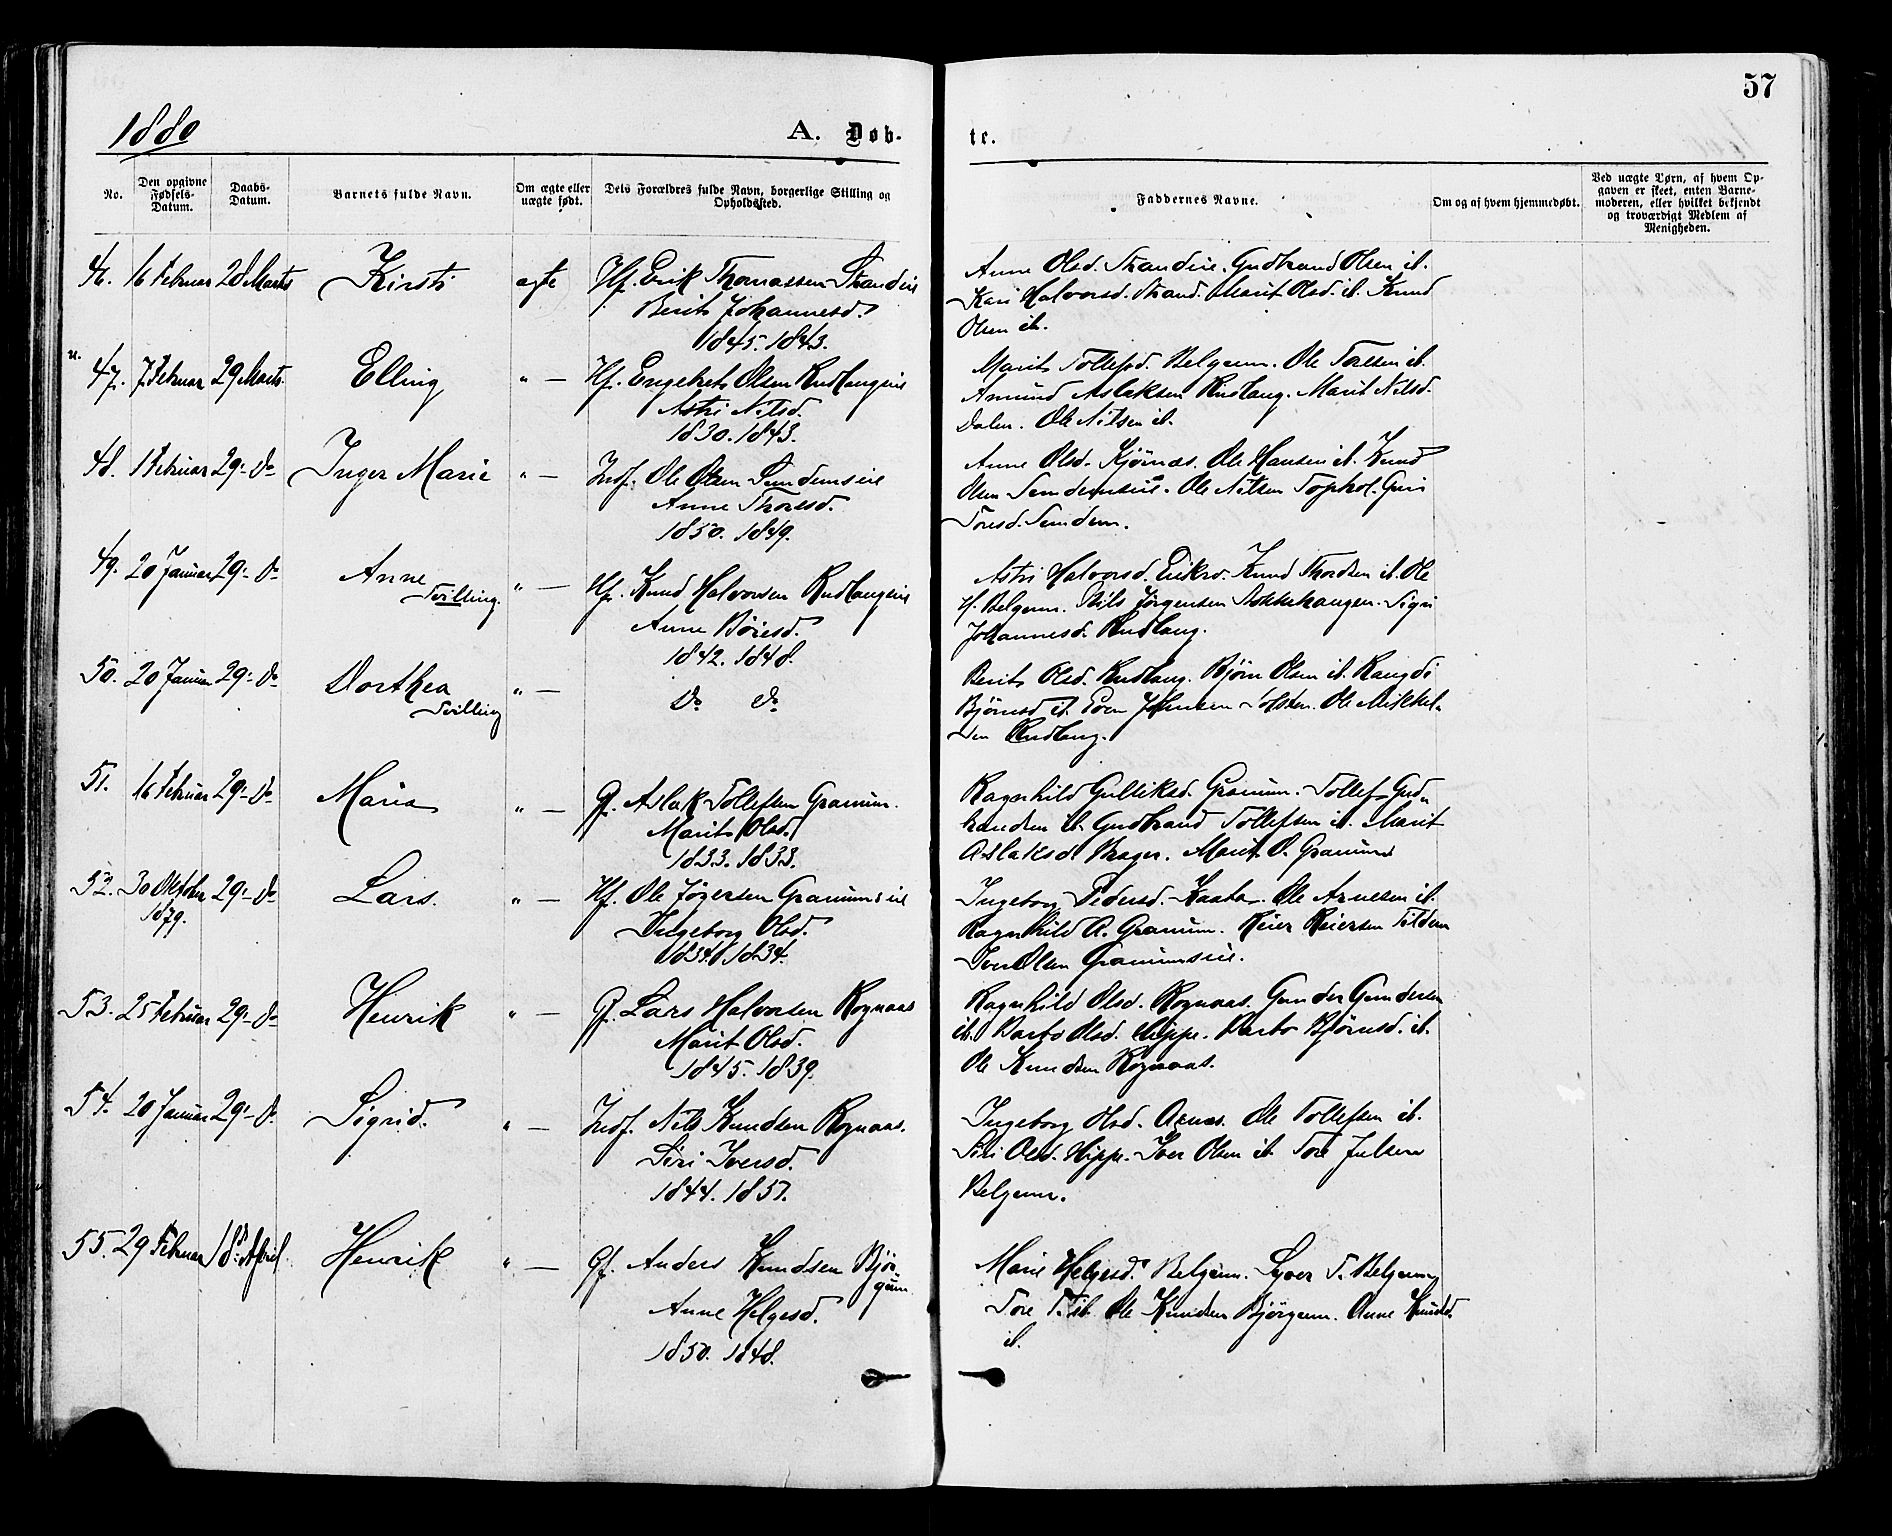 57
1880
A. Døb-
te.
No.
Den opgivne Fødsels-Datum.
Daabs-Datum.
Barnets fulde Navn.
Om ægte eller uægte født.
Dets Forældres fulde Navn, borgerlige Stilling og Opholdssted.
Faddernes Navne.
Om og af hvem hjemmedøbt.
Ved uægte Børn, af hvem Op-
gaven er skeet, enten Barne-
moderen, eller hvilket bekjendt
og troværdigt Medlem af
Menigheden.
46. 16 Februar 28 Marts Kirsti ægte Hf. Erik Thomassen Strandeie
Berit Johannesd.
1845. 1843.
Anne Olsd. Strandeie. Gudbrand Olsen ib.
Kari Halvorsd. Strand. Marit Olsd. ib. Knud
Olsen ib.
47. 7 Februar 29 Marts. Elling " — Hf. Engebret Olsen Rudlangeie
Astri Nilsd.
1830. 1843.
Marit Tollefsd. Belgum. Ole Toresen ib.
Amund Aslaksen Rudlang. Marit Nilsd.
Dalen. Ole Nilsen ib.
48. 1 Februar 29 - do Inger Marie " — Indf. Ole Olsen Semdemseie
Anne Thoresd.
1850. 1849.
Anne Olsd. Kjørnæs. Ole Hansen ib. Knud
Olsen Semdemseie. Ole Nilsen Tophol. Guri
Toresd. Semdem.
49. 20 Januar 29 - do Anne
Tvilling. " — Hf. Knud Halvorsen Rudlangeie
Anne Bøiesd.
1842. 1848.
Astri Halvorsd. Eikro. Knud Thordsen ib. Ole
H. Belgum. Nils Jørgensen Stokkehaugen. Sigri
Johannesd. Rudlang.
50. 20 Januar 29 - do Dorthea
Tvilling " — do do
Berit Olsd. Rudlang. Bjørn Olsen ib. Rangdi
Bjørnsd. ib. Even Johnsen Tolsten. Ole Mikkel-
sen Rudlang.
51. 16 Februar 29 - do Maria " — Gf. Aslak Tollefsen Granum.
Marit Olsd.
1833. 1833.
Ragnhild Gulliksd. Granum. Tollef Gud-
brandsen ib. Gudbrand Tollefsen ib. Marit
Aslaksd. Brager. Marit O. Granum
52. 30 Oktober 1879. 29 - do Lars. " — Hf. Ole Jøgersen Granumseie
Ingeborg Olsd.
1834. 1834.
Ingeborg Pedersd. Kaata. Ole Arnesen ib.
Ragnhild A. Granum. Reier Reiersen Tildem
Iver Olsen Granumseie.
53. 25 Februar 29 - do Henrik " — Gf. Lars Halvorsen Rognaas
Marit Olsd.
1845. 1839.
Ragnhild Olsd. Rognaas. Gunder Gundersen
ib. Barbo Olsd. Hippe. Barbo Bjørnsd. ib.
Ole Knudsen Rognaas.
54. 20 Januar 29 - do Sigrid. " — Indf. Nils Knudsen Rognaas.
Siri Iversd.
1844. 1857.
Ingeborg Olsd. Aanæs. Ole Tollefsen ib.
Siri Olsd. Hippe. Iver Olsen ib. Tore Julsen
Belgum.
55. 29 Februar 18 April Henrik " — Gf. Anders Knudsen Bjør-
gum
Anne Helgesd.
1850. 1848.
Marie Helgesd. Belgum. Syver T. Belgum
Tore T. ib. Ole Knudsen Bjørgum. Anne Knudsd.
ib.